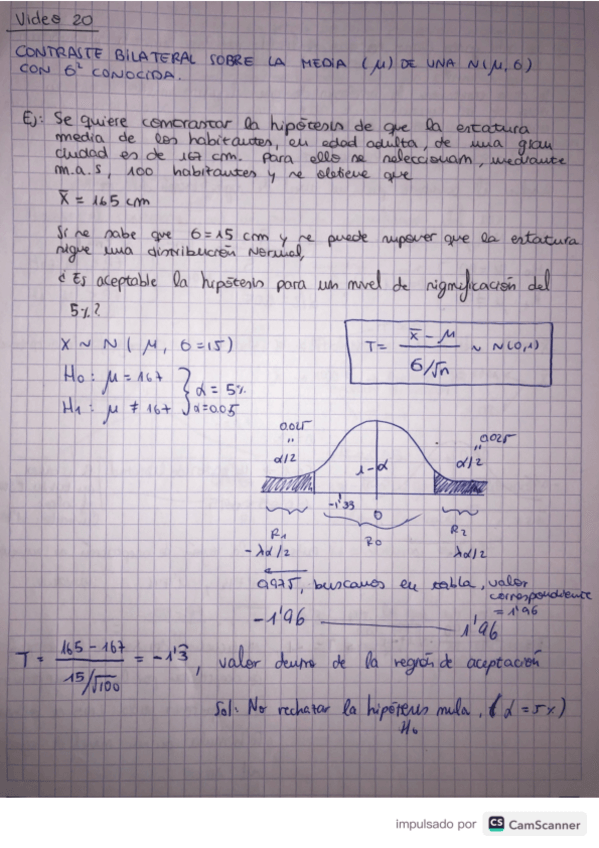 Video 20
CONTRASTE BILATERAL SOBRE LA MEDIA (μ) DE UNA N(μ, σ)
CON σ² CONOCIDA.
Ej: Se quiere contrastar la hipótesis de que la estatura
media de los habitantes, en edad adulta, de una gran
ciudad es de 167 cm. Para ello se seleccionam, mediante
m.a.s, 100 habitantes y se obtiene que
x̄ = 165 cm
Si se sabe que σ=15 cm y se puede suponer que la estatura
sigue una distribución Normal,
¿ Es aceptable la hipótesis para un nivel de significación del
5%?
X ~ N( μ, σ=15)
T= (x̄ - μ) / (σ/√n) ~ N(0,1)
H₀: μ = 167 } α = 5%
H₁: μ ≠ 167 } α=0.05
0,025 0,025
" "
α/2 1-α α/2
-1'33 0
R₁ R₀ R₂
-λα/2 λα/2
0,975, buscamos en tabla, valor
correspondiente
= 1'96
-1'96 1'96
T = (165 - 167) / (15/√100) = -1'3̂, valor dentro de la región de aceptación
Sol: No rechazar la hipótesis nula, (α = 5%)
H₀
impulsado por CS CamScanner